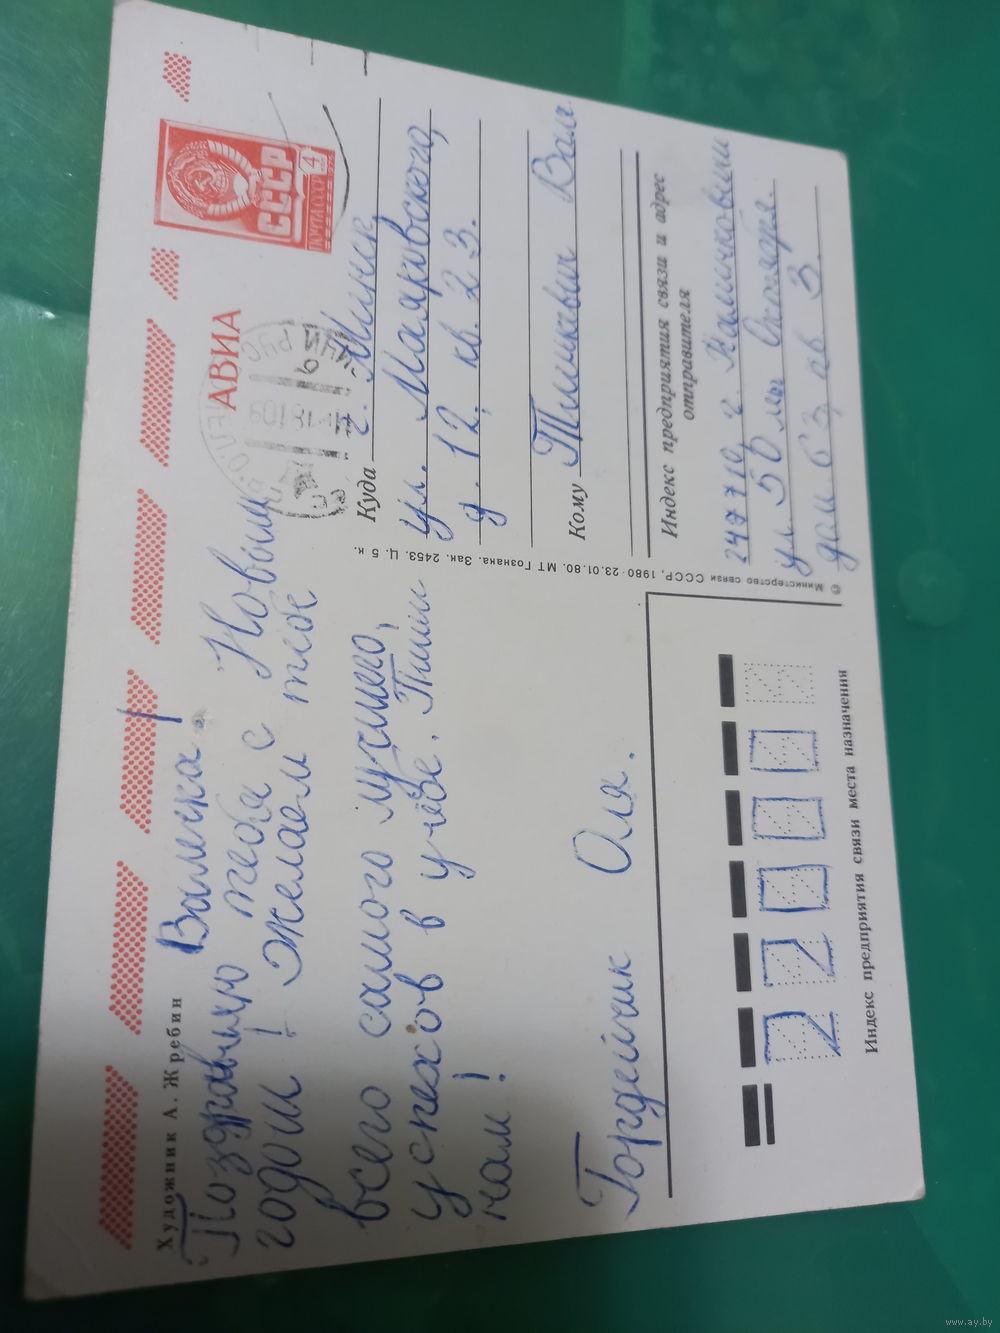 Художник А. Жребин
Валечка!
Поздравляю тебя с Новым
годом! Желаем тебе
всего самого лучшего,
успехов в учёбе. Пиши
нам!
Гордейчик Оля.
© Министерство связи СССР, 1980 · 23.01.80. МТ Гознака. Зак. 2453. Ц. 5 к.
СССР
ПОЧТА СССР
4
АВИА
Куда г. Минск
ул. Маяковского,
д. 12, кв. 23.
Кому Вале
Индекс предприятия связи и адрес
отправителя
247710 г. Калинковичи
ул. 50 лет Октября.
дом 63, кв 3.
22000
Индекс предприятия связи места назначения
www.ay.by